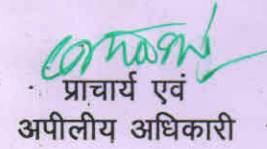 प्राचार्य एवं
अपीलीय अधिकारी